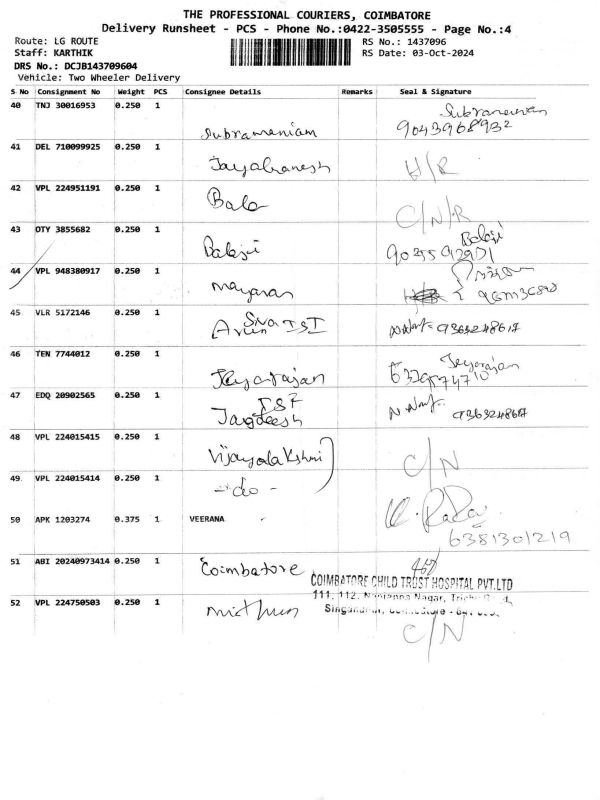 THE PROFESSIONAL COURIERS, COIMBATORE
Delivery Runsheet - PCS - Phone No.:0422-3505555 - Page No.:4
Route: LG ROUTE RS No.: 1437096
Staff: KARTHIK RS Date: 03-Oct-2024
DRS No.: DCJB143709604
Vehicle: Two Wheeler Delivery
S No Consignment No Weight PCS Consignee Details Remarks Seal & Signature
40 TNJ 30016953 0.250 1
Subramaniam 9043968932
41 DEL 710099925 0.250 1
Jayaganesh H/R
42 VPL 224951191 0.250 1
Bala C/N/R
43 OTY 3855682 0.250 1
Balaji Balaji
44 VPL 948380917 0.250 1
mayavan
45 VLR 5172146 0.250 1
Siva TST
Arun 9363248617
46 TEN 7744012 0.250 1
Jeyarajan Jeyarajan
47 EDQ 20902565 0.250 1
TST
Jagdeesh 9363248617
48 VPL 224015415 0.250 1
Vijayalakshmi C/N
49 VPL 224015414 0.250 1
- do -
50 APK 1203274 0.375 1 VEERANA
6381301219
51 ABI 20240973414 0.250 1
Coimbatore
COIMBATORE CHILD TRUST HOSPITAL PVT.LTD
111, 112, Nanjappa Nagar, Trichy Road,
52 VPL 224750503 0.250 1
Mithun C/N